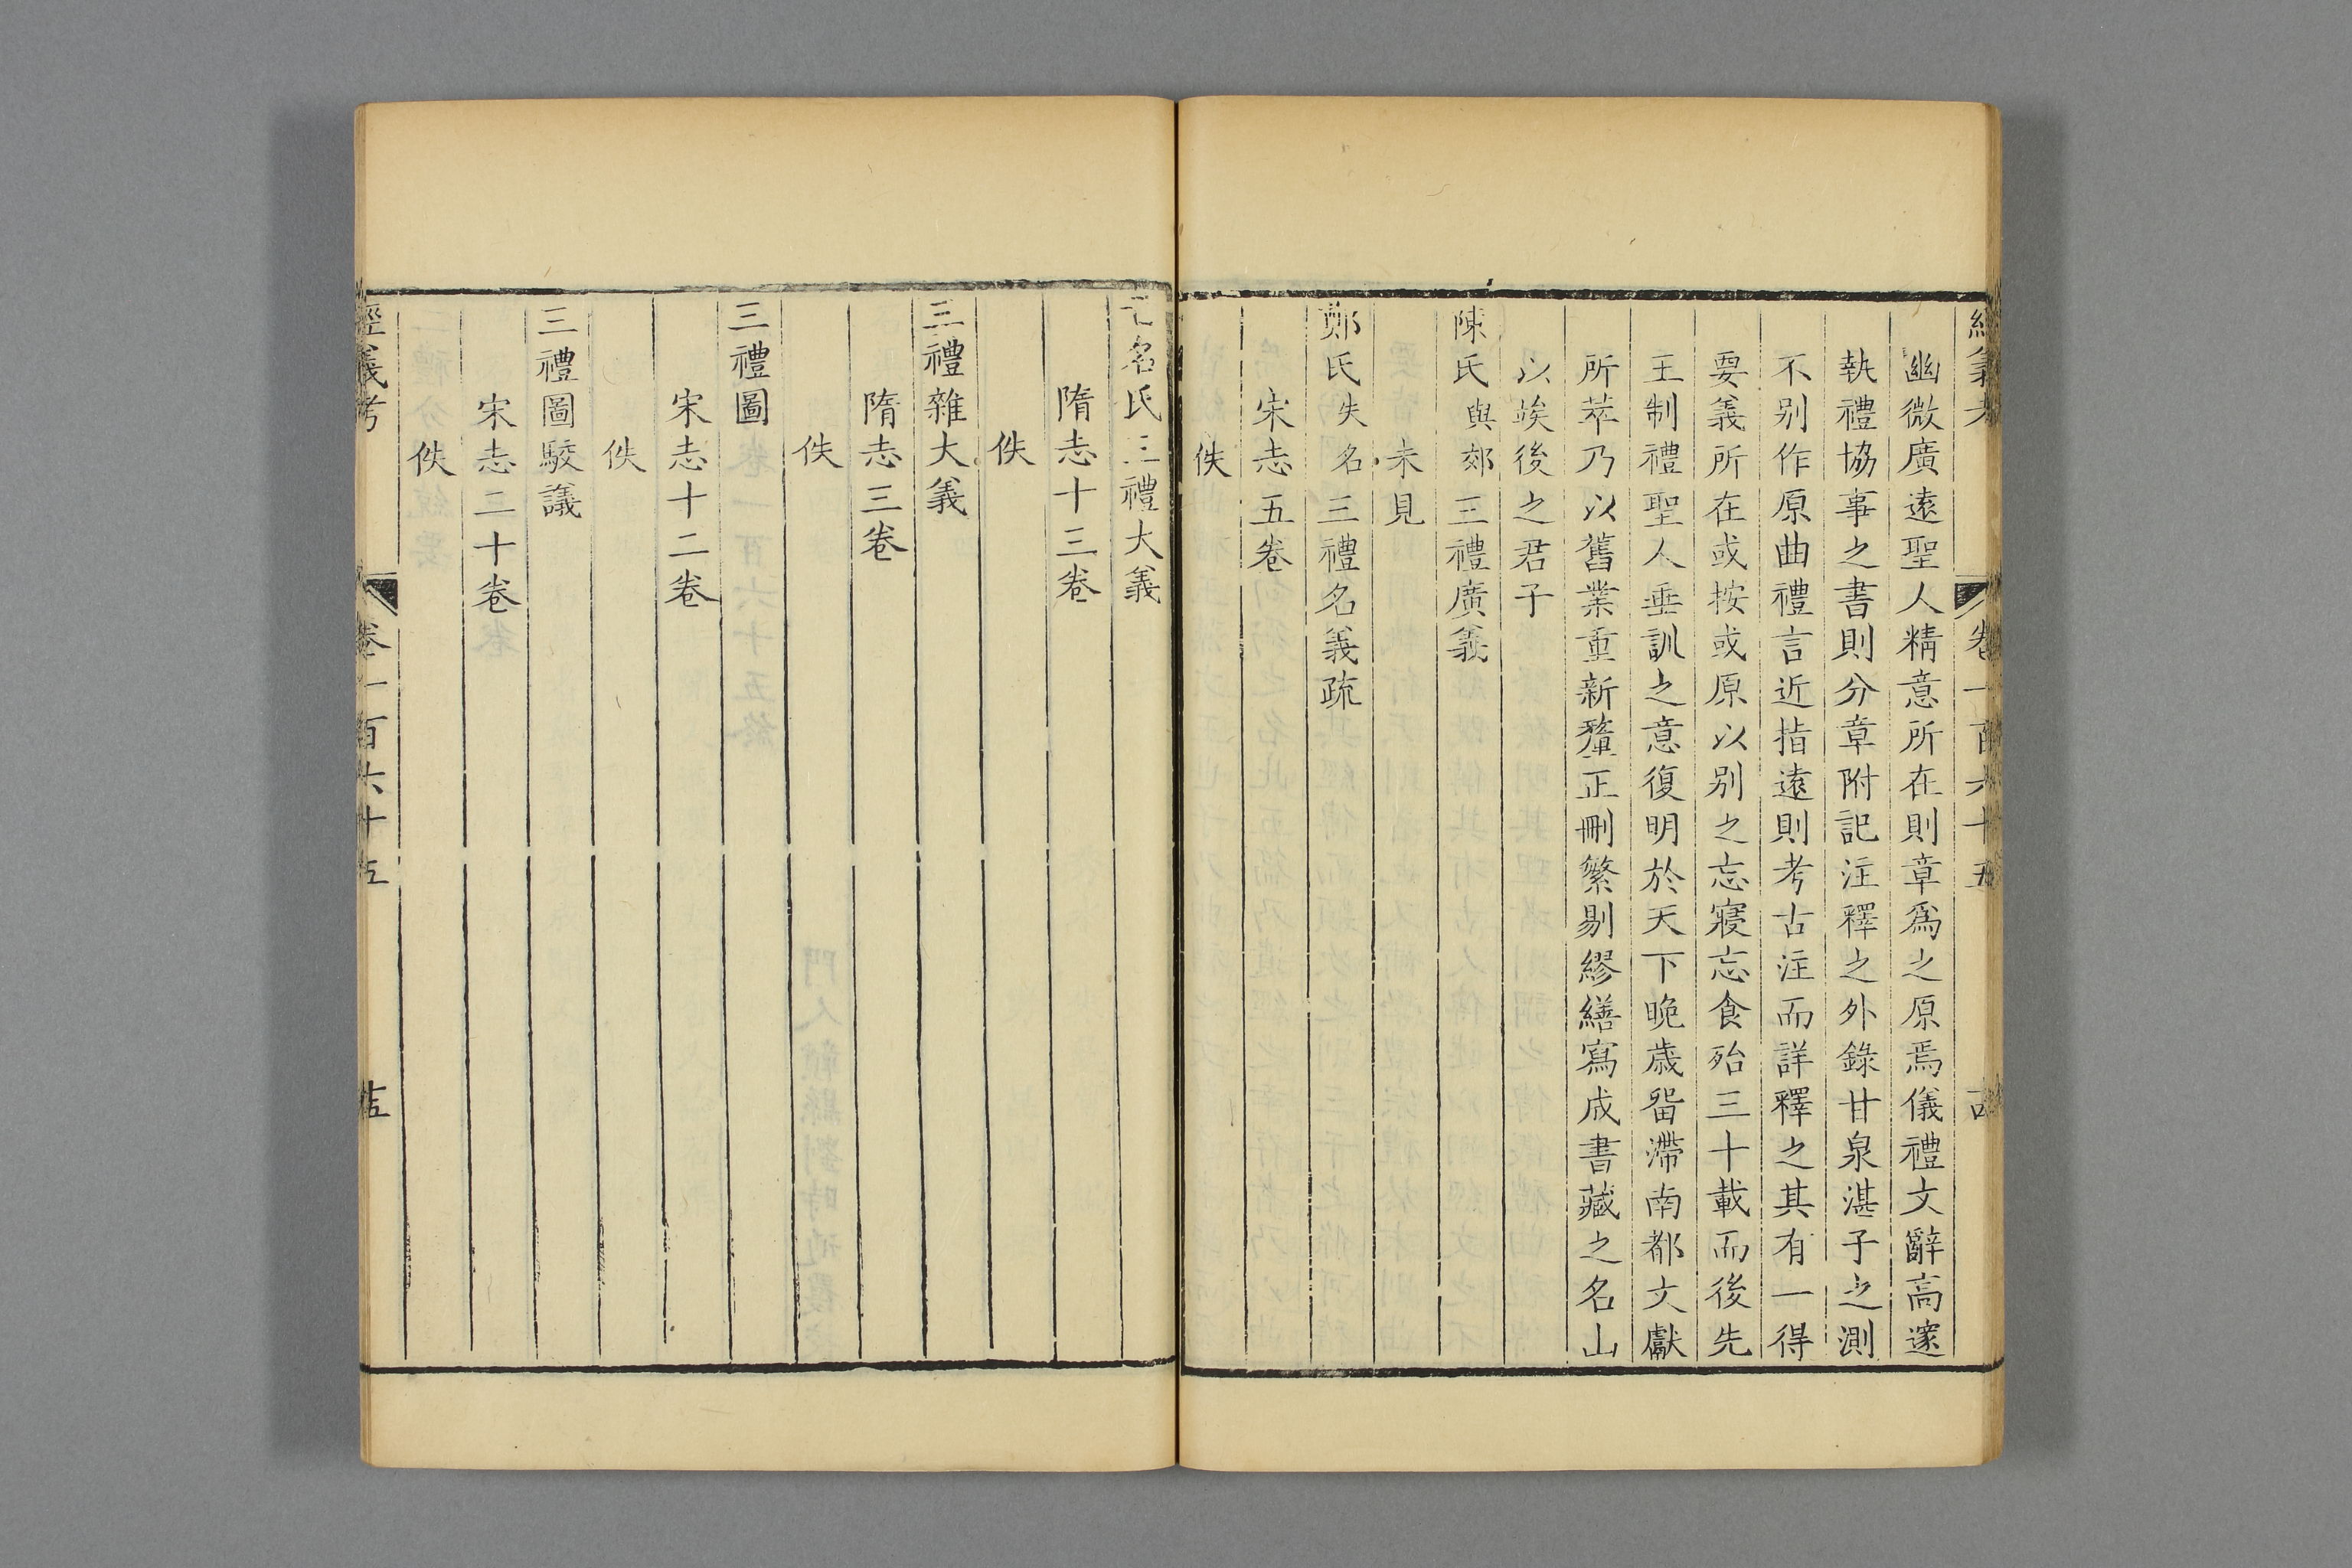 經義考 卷一百六十五
幽微廣遠聖人精意所在則章爲之原焉儀禮文辭高邃
執禮協事之書則分章附記注釋之外錄甘泉湛子之測
不别作原曲禮言近指遠則考古注而詳釋之其有一得
要義所在或按或原以别之忘寢忘食殆三十載而後先
王制禮聖人垂訓之意復明於天下晩歲畱滯南都文獻
所萃乃以舊業重新釐正刪繁剔繆繕寫成書藏之名山
以竢後之君子
陳氏與郊三禮廣義
未見
鄭氏失名三禮名義疏
宋志五卷
佚
名氏三禮大義
隋志十三卷
佚
三禮雜大義
隋志三卷
佚
三禮圖
宋志十二卷
佚
三禮圖駮議
宋志二十卷
佚
經義考 卷一百六十五